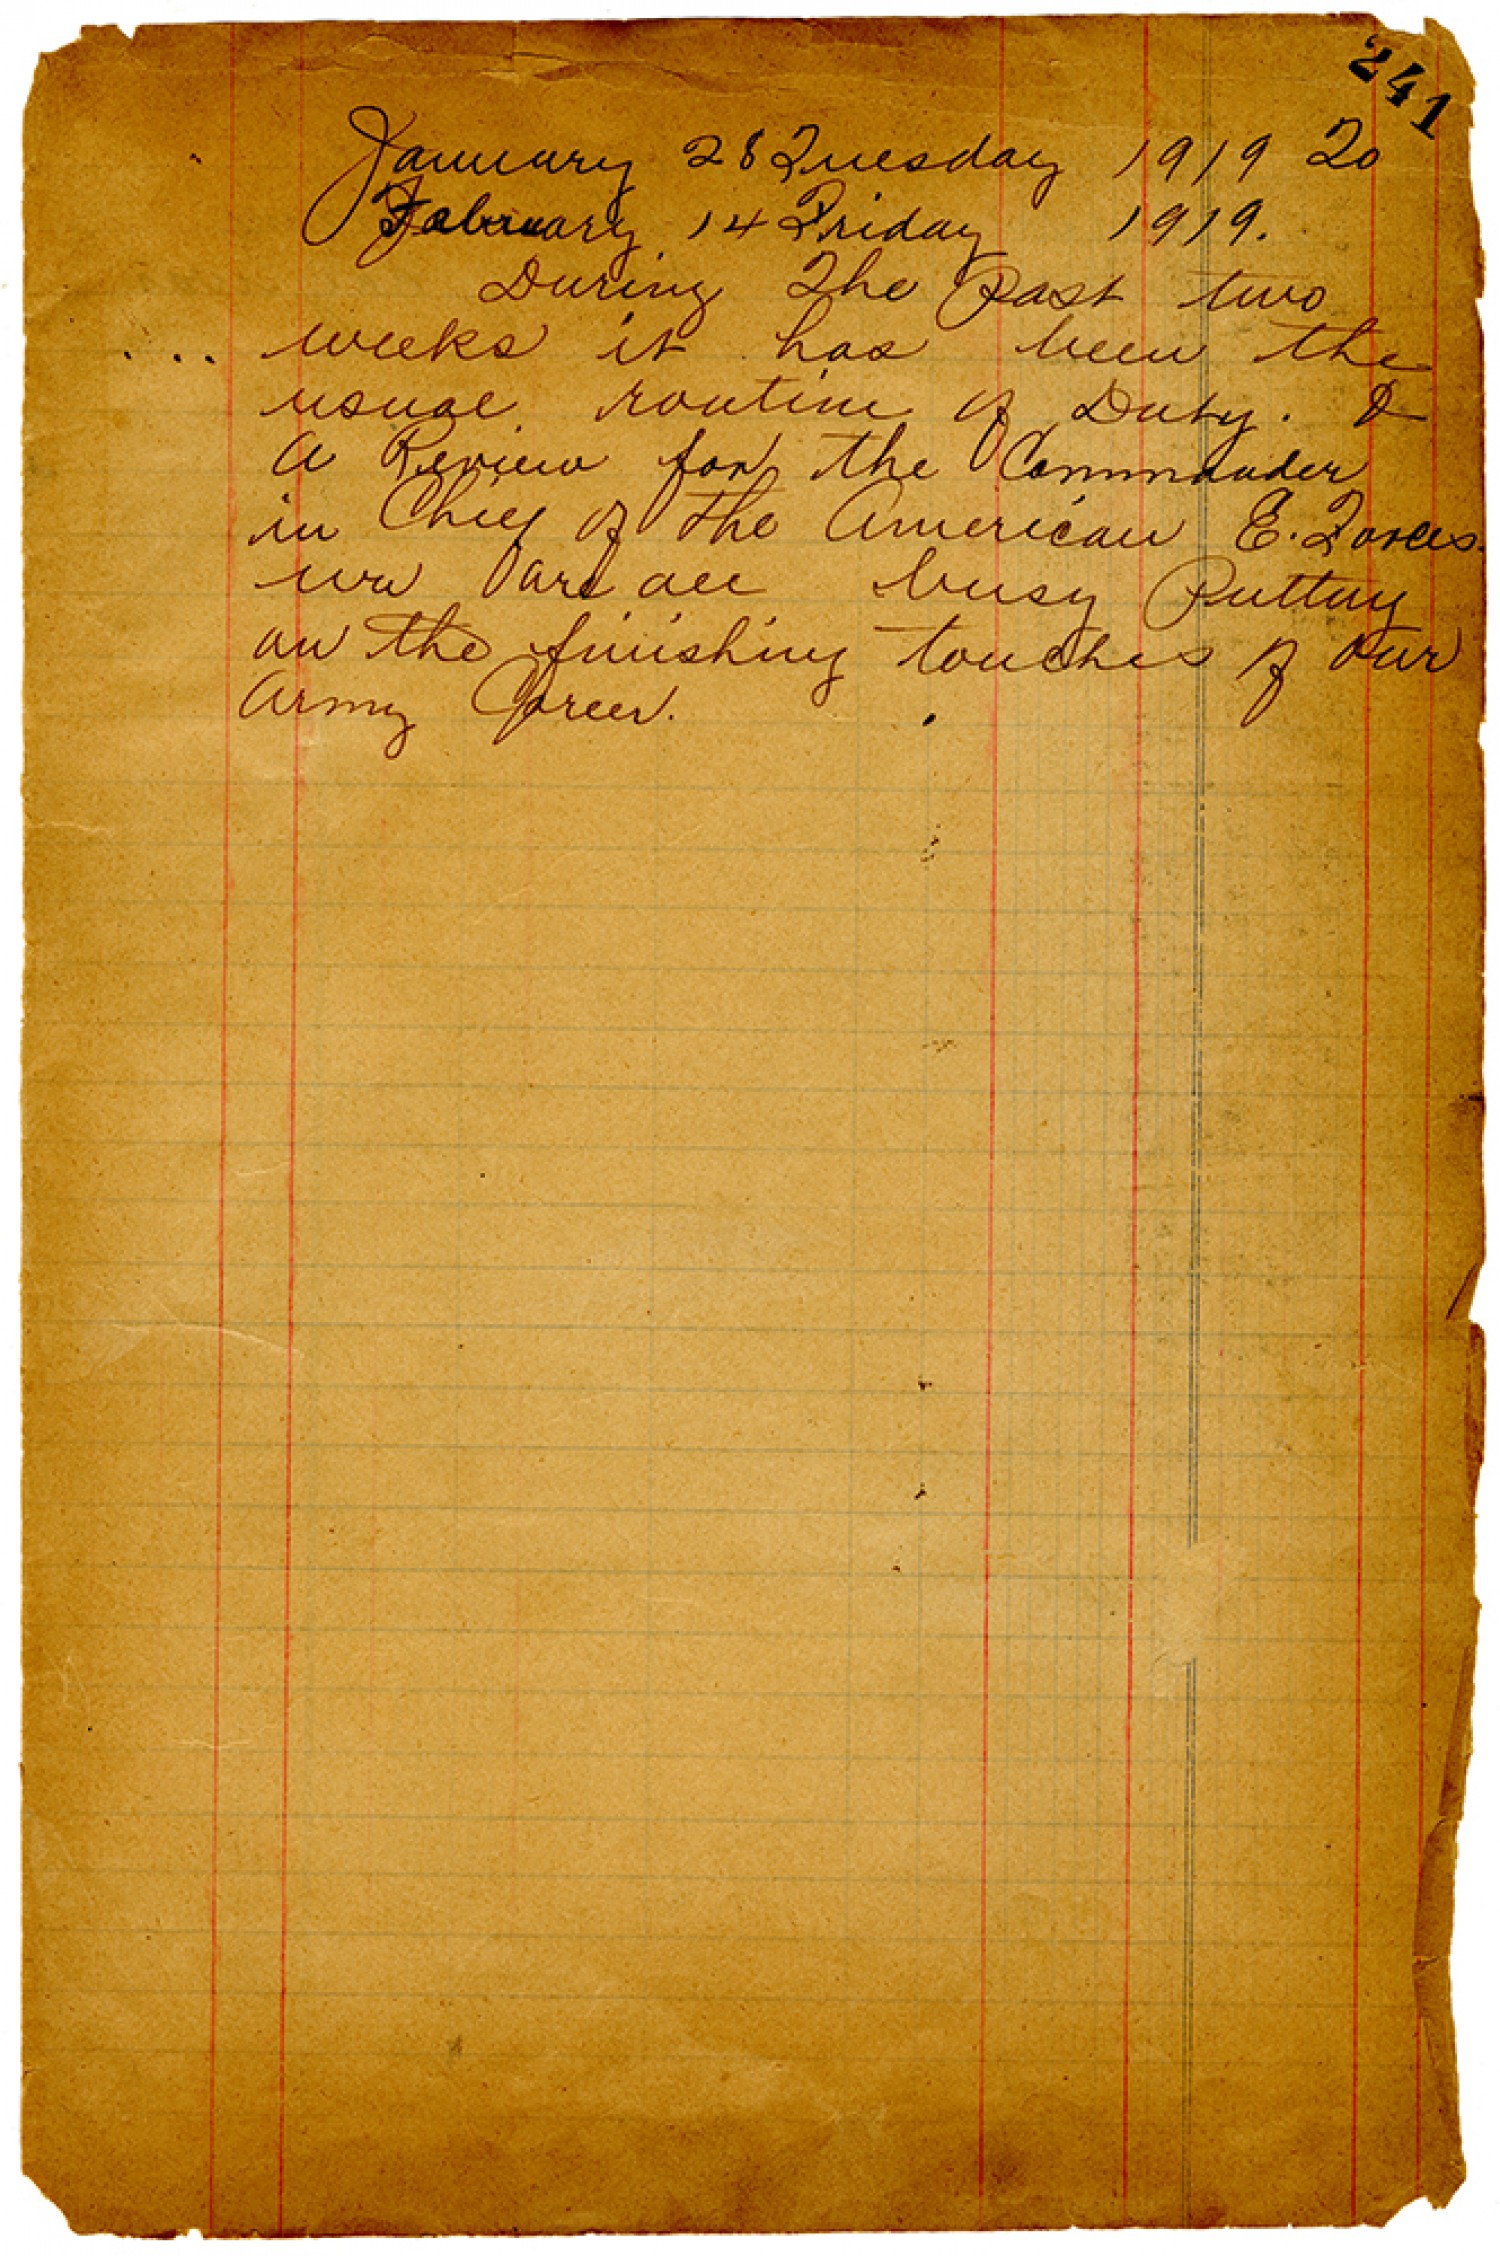 241
January 28 Tuesday 1919 To
February 14 Friday 1919.
During The Past two
... weeks it has been the
usual routine of Duty. &
A Review for the Commander
in Chief of The American E. Forces.
we are all busy Putting
on the finishing touches of our
Army Career.